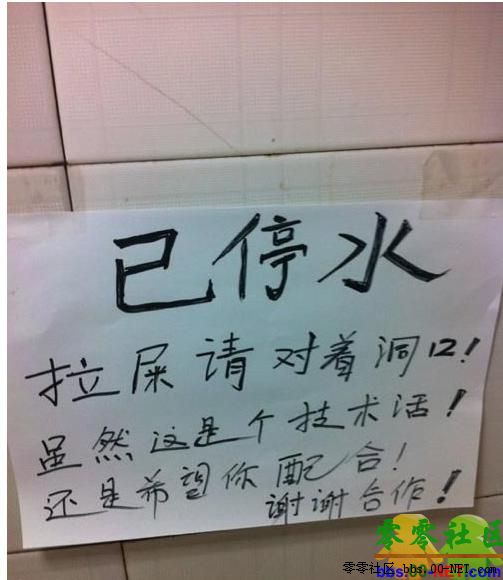 已停水
拉屎请对着洞口!
虽然这是个技术活!
还是希望你配合!
谢谢合作!
零零社区
零零社区 bbs.00-NET.com